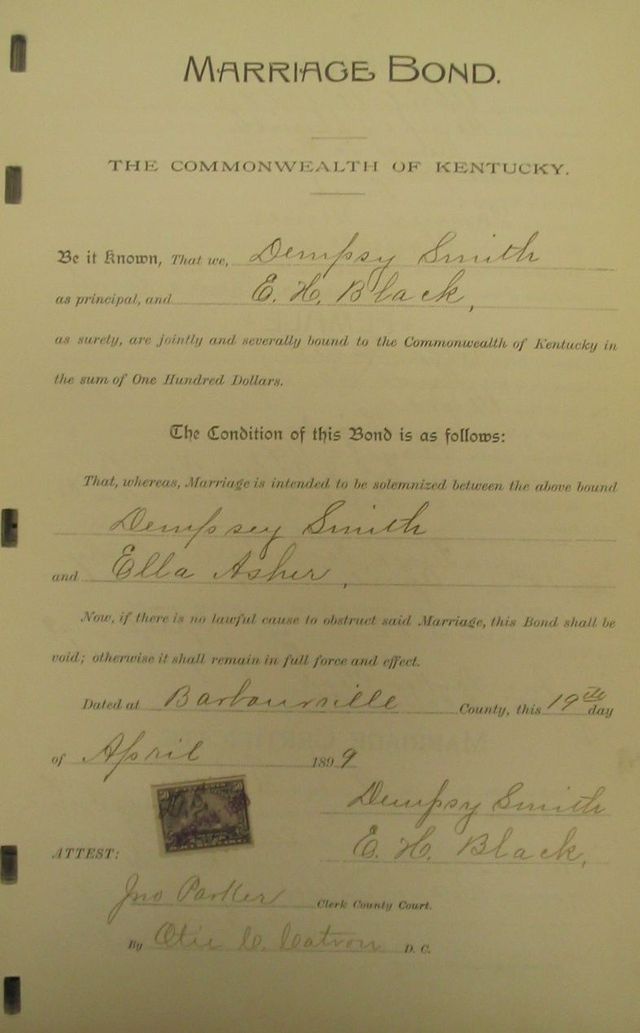 MARRIAGE BOND.
THE COMMONWEALTH OF KENTUCKY.
Be it Known, That we, Dempsy Smith
as principal, and E. H. Black,
as surety, are jointly and severally bound to the Commonwealth of Kentucky in
the sum of One Hundred Dollars.
The Condition of this Bond is as follows:
That, whereas, Marriage is intended to be solemnized between the above bound
Dempsey Smith
and Ella Asher,
Now, if there is no lawful cause to obstruct said Marriage, this Bond shall be
void; otherwise it shall remain in full force and effect.
Dated at Barbourville County, this 19th day
of April 1899
Dempsy Smith
ATTEST: E. H. Black,
Jno Parker Clerk County Court.
By Otie C. Catron D. C.